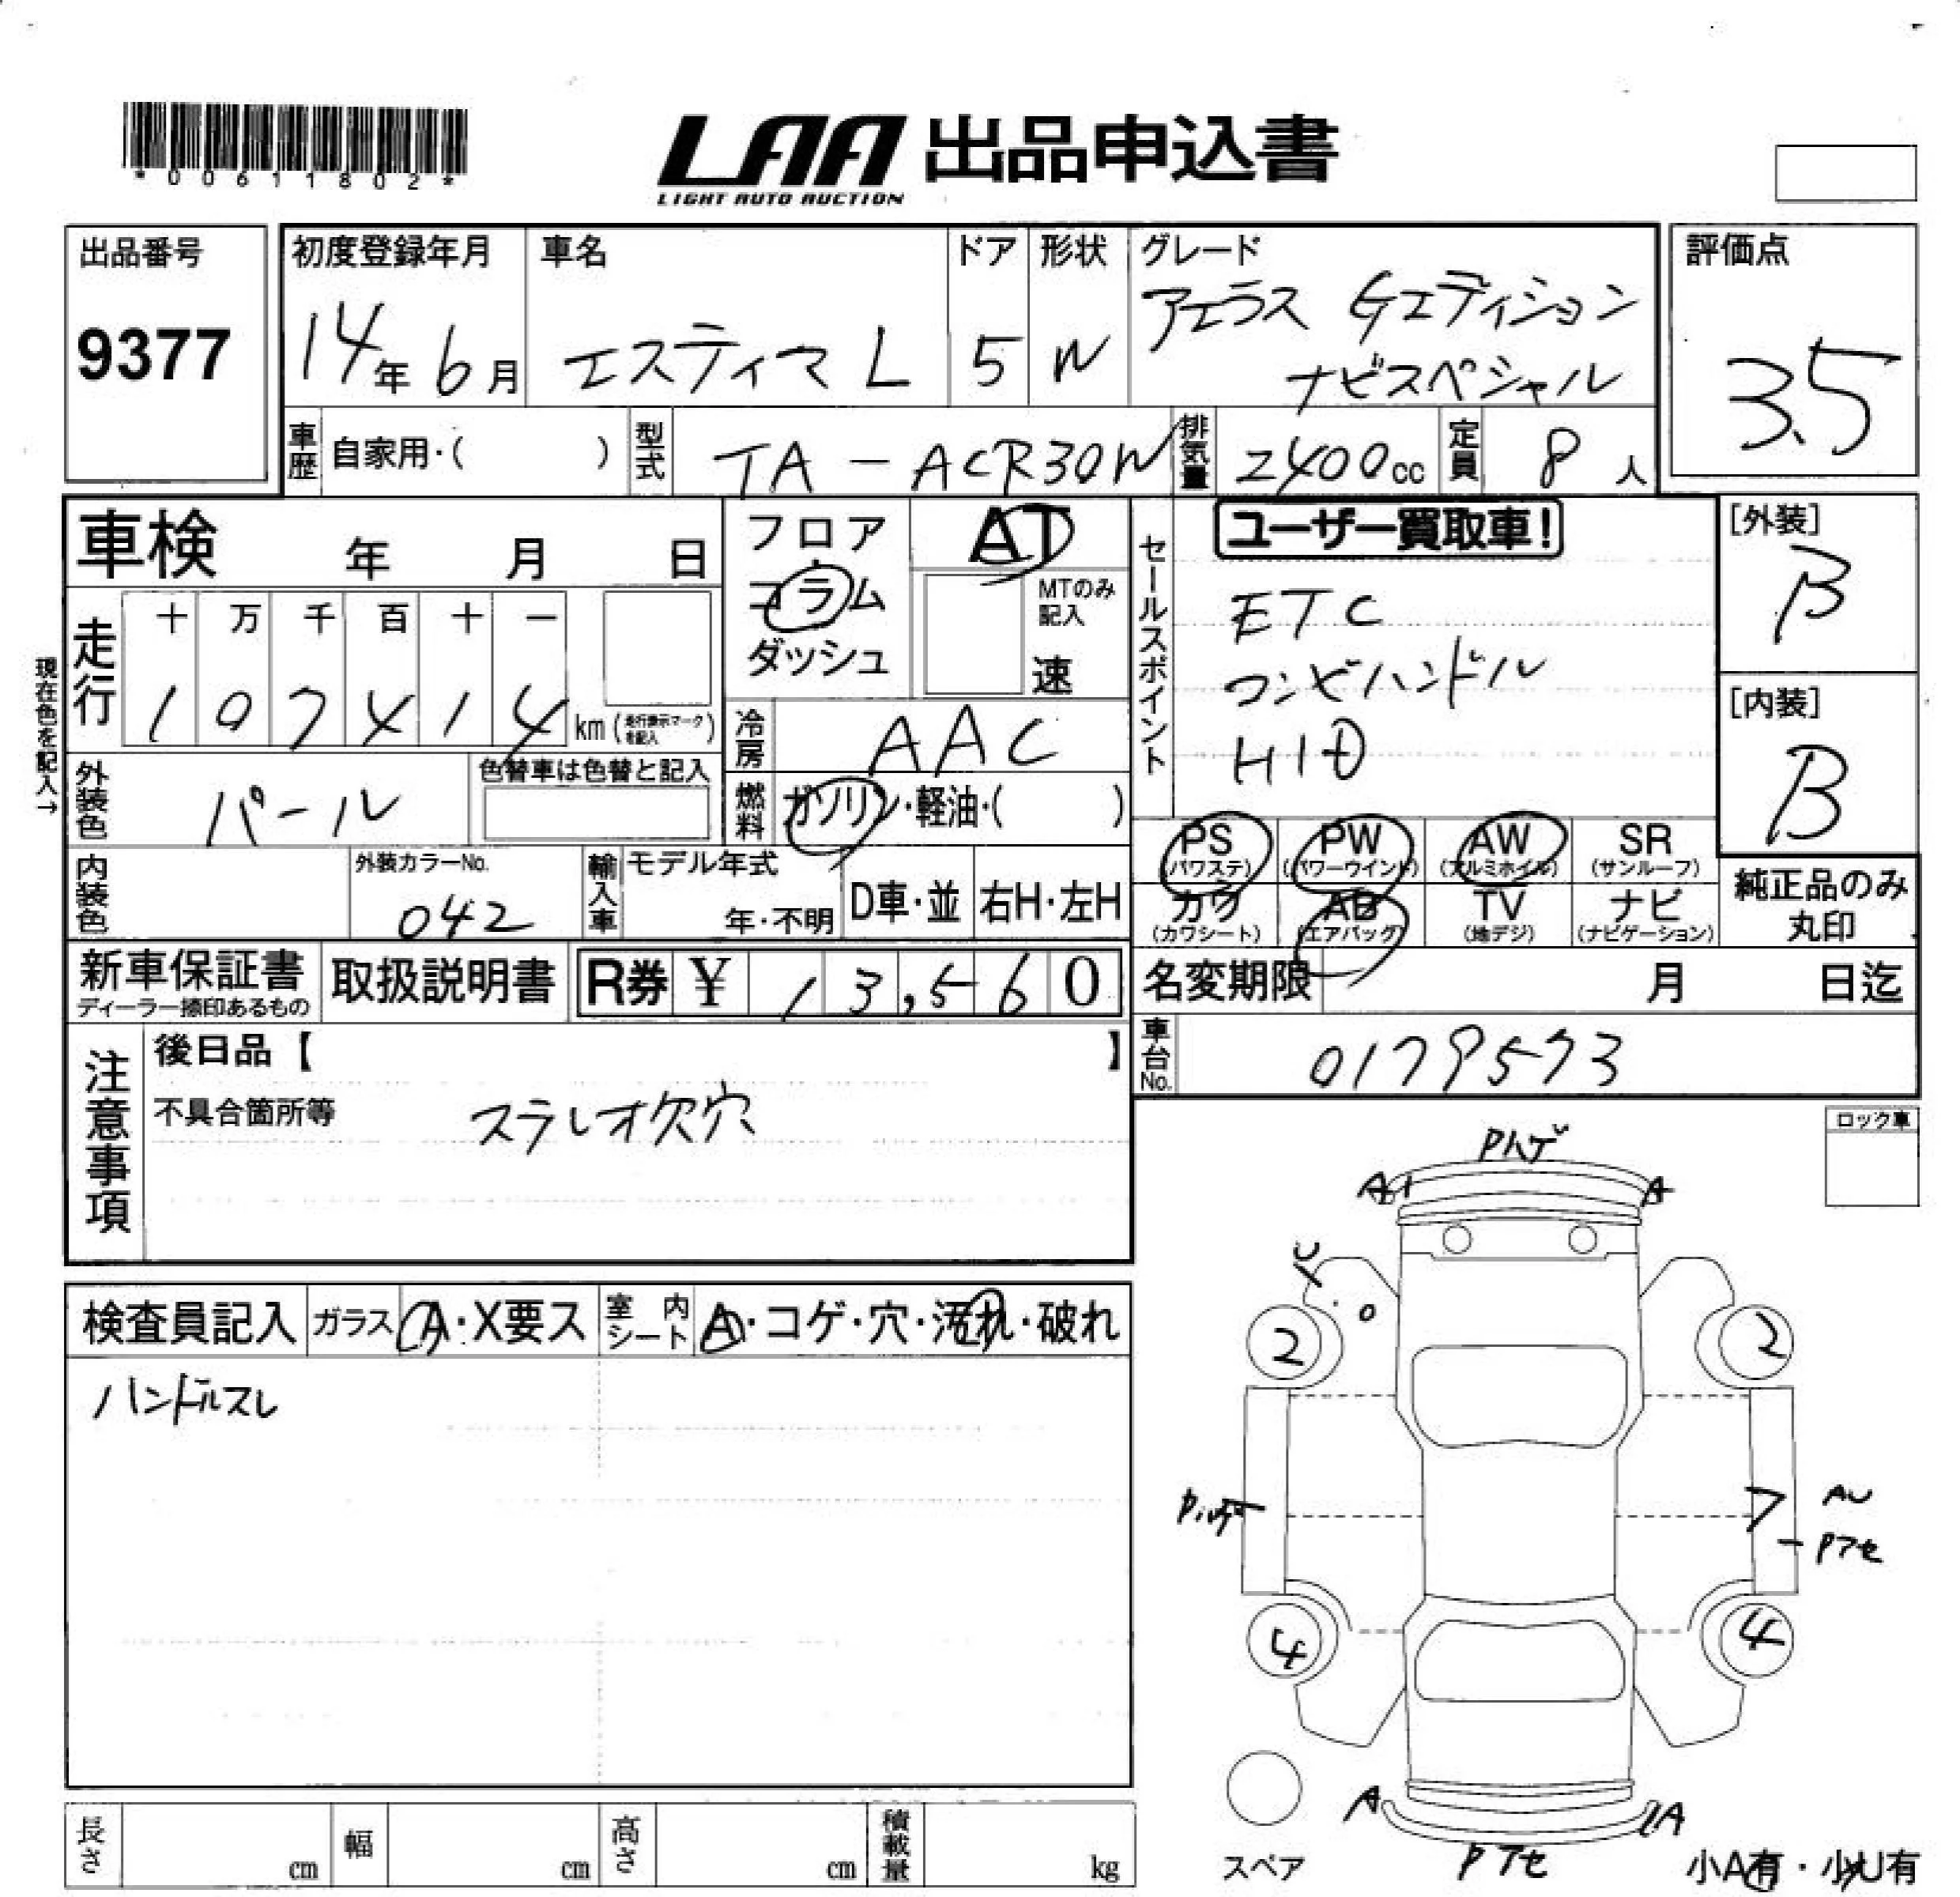 *00611802*
LAA 出品申込書
LIGHT AUTO AUCTION
出品番号
9377
初度登録年月
14年 6月
車名
エスティマ L
ドア
5
形状
W
グレード
アエラス Gエディション
ナビスペシャル
評価点
3.5
車歴 自家用・( )
型式 TA-ACR30W
排気量 2400cc
定員 8人
車検 年 月 日
フロア
コラム
ダッシュ
AT
MTのみ
記入
速
セールスポイント
ユーザー買取車!
ETC
コンビハンドル
HID
[外装]
B
[内装]
B
現在色を記入→
走行
十 万 千 百 十 一
1 0 7 4 1 4 km (走行表示マークを記入)
冷房 AAC
外装色 パール
色替車は色替と記入
燃料 ガソリン・軽油・( )
PS (パワステ)
PW (パワーウインド)
AW (アルミホイル)
SR (サンルーフ)
カワ (カワシート)
AB (エアバック)
TV (地デジ)
ナビ (ナビゲーション)
純正品のみ
丸印
内装色
外装カラーNo.
042
輸入車
モデル年式
年・不明
D車・並
右H・左H
新車保証書
ディーラー捺印あるもの
取扱説明書
R券 ¥ 13,560
名変期限 月 日迄
車台No. 0179573
注意事項
後日品【 】
不具合箇所等 ステレオ欠穴
ロック車
検査員記入
ガラス A・X要ス
室内シート A・コゲ・穴・汚れ・破れ
ハンドルスレ
Pハゲ
A1
A
XU
2
2
Pハゲ
AU
Pアセ
4
4
A
A
Pアセ
スペア
小A有・小U有
長さ cm
幅 cm
高さ cm
積載量 kg